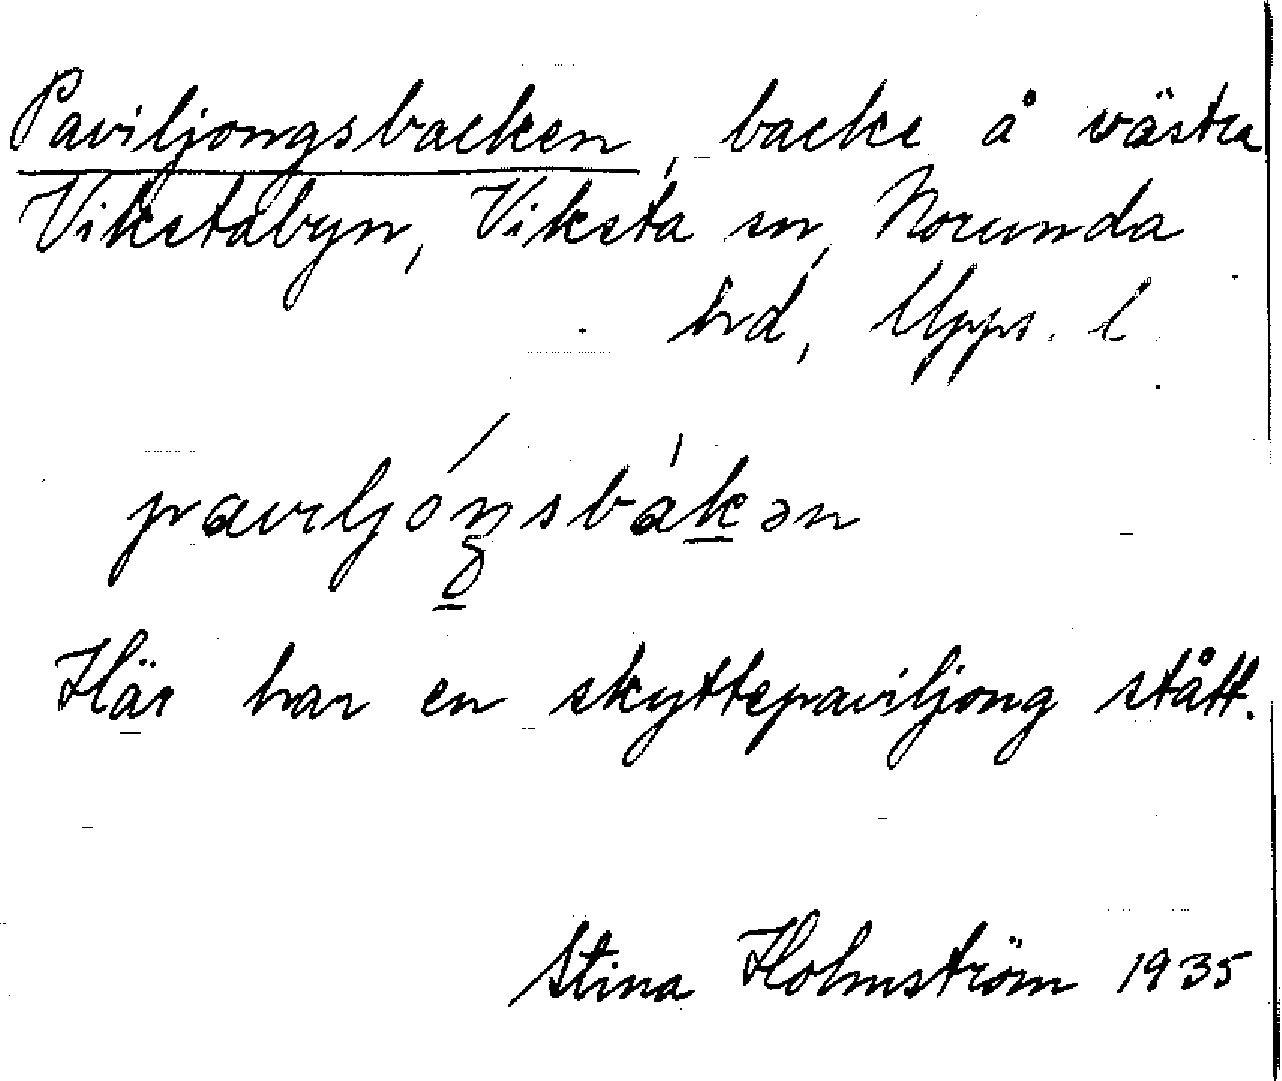 Paviljongsbacken, backe å västra
Vikstabyn, Viksta sn, Norunda
hd, Upps. l
paviljóŋsbàkən
Här har en skyttepaviljong stått.
Stina Holmström 1935